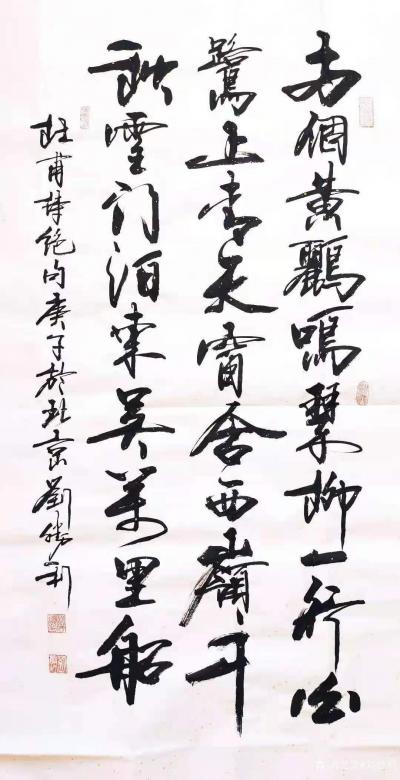 两個黄鸝鳴翠柳一行白
鷺上青天窗含西嶺千
秋雪门泊東吴萬里船
杜甫詩絶句庚子於北京劉勝利